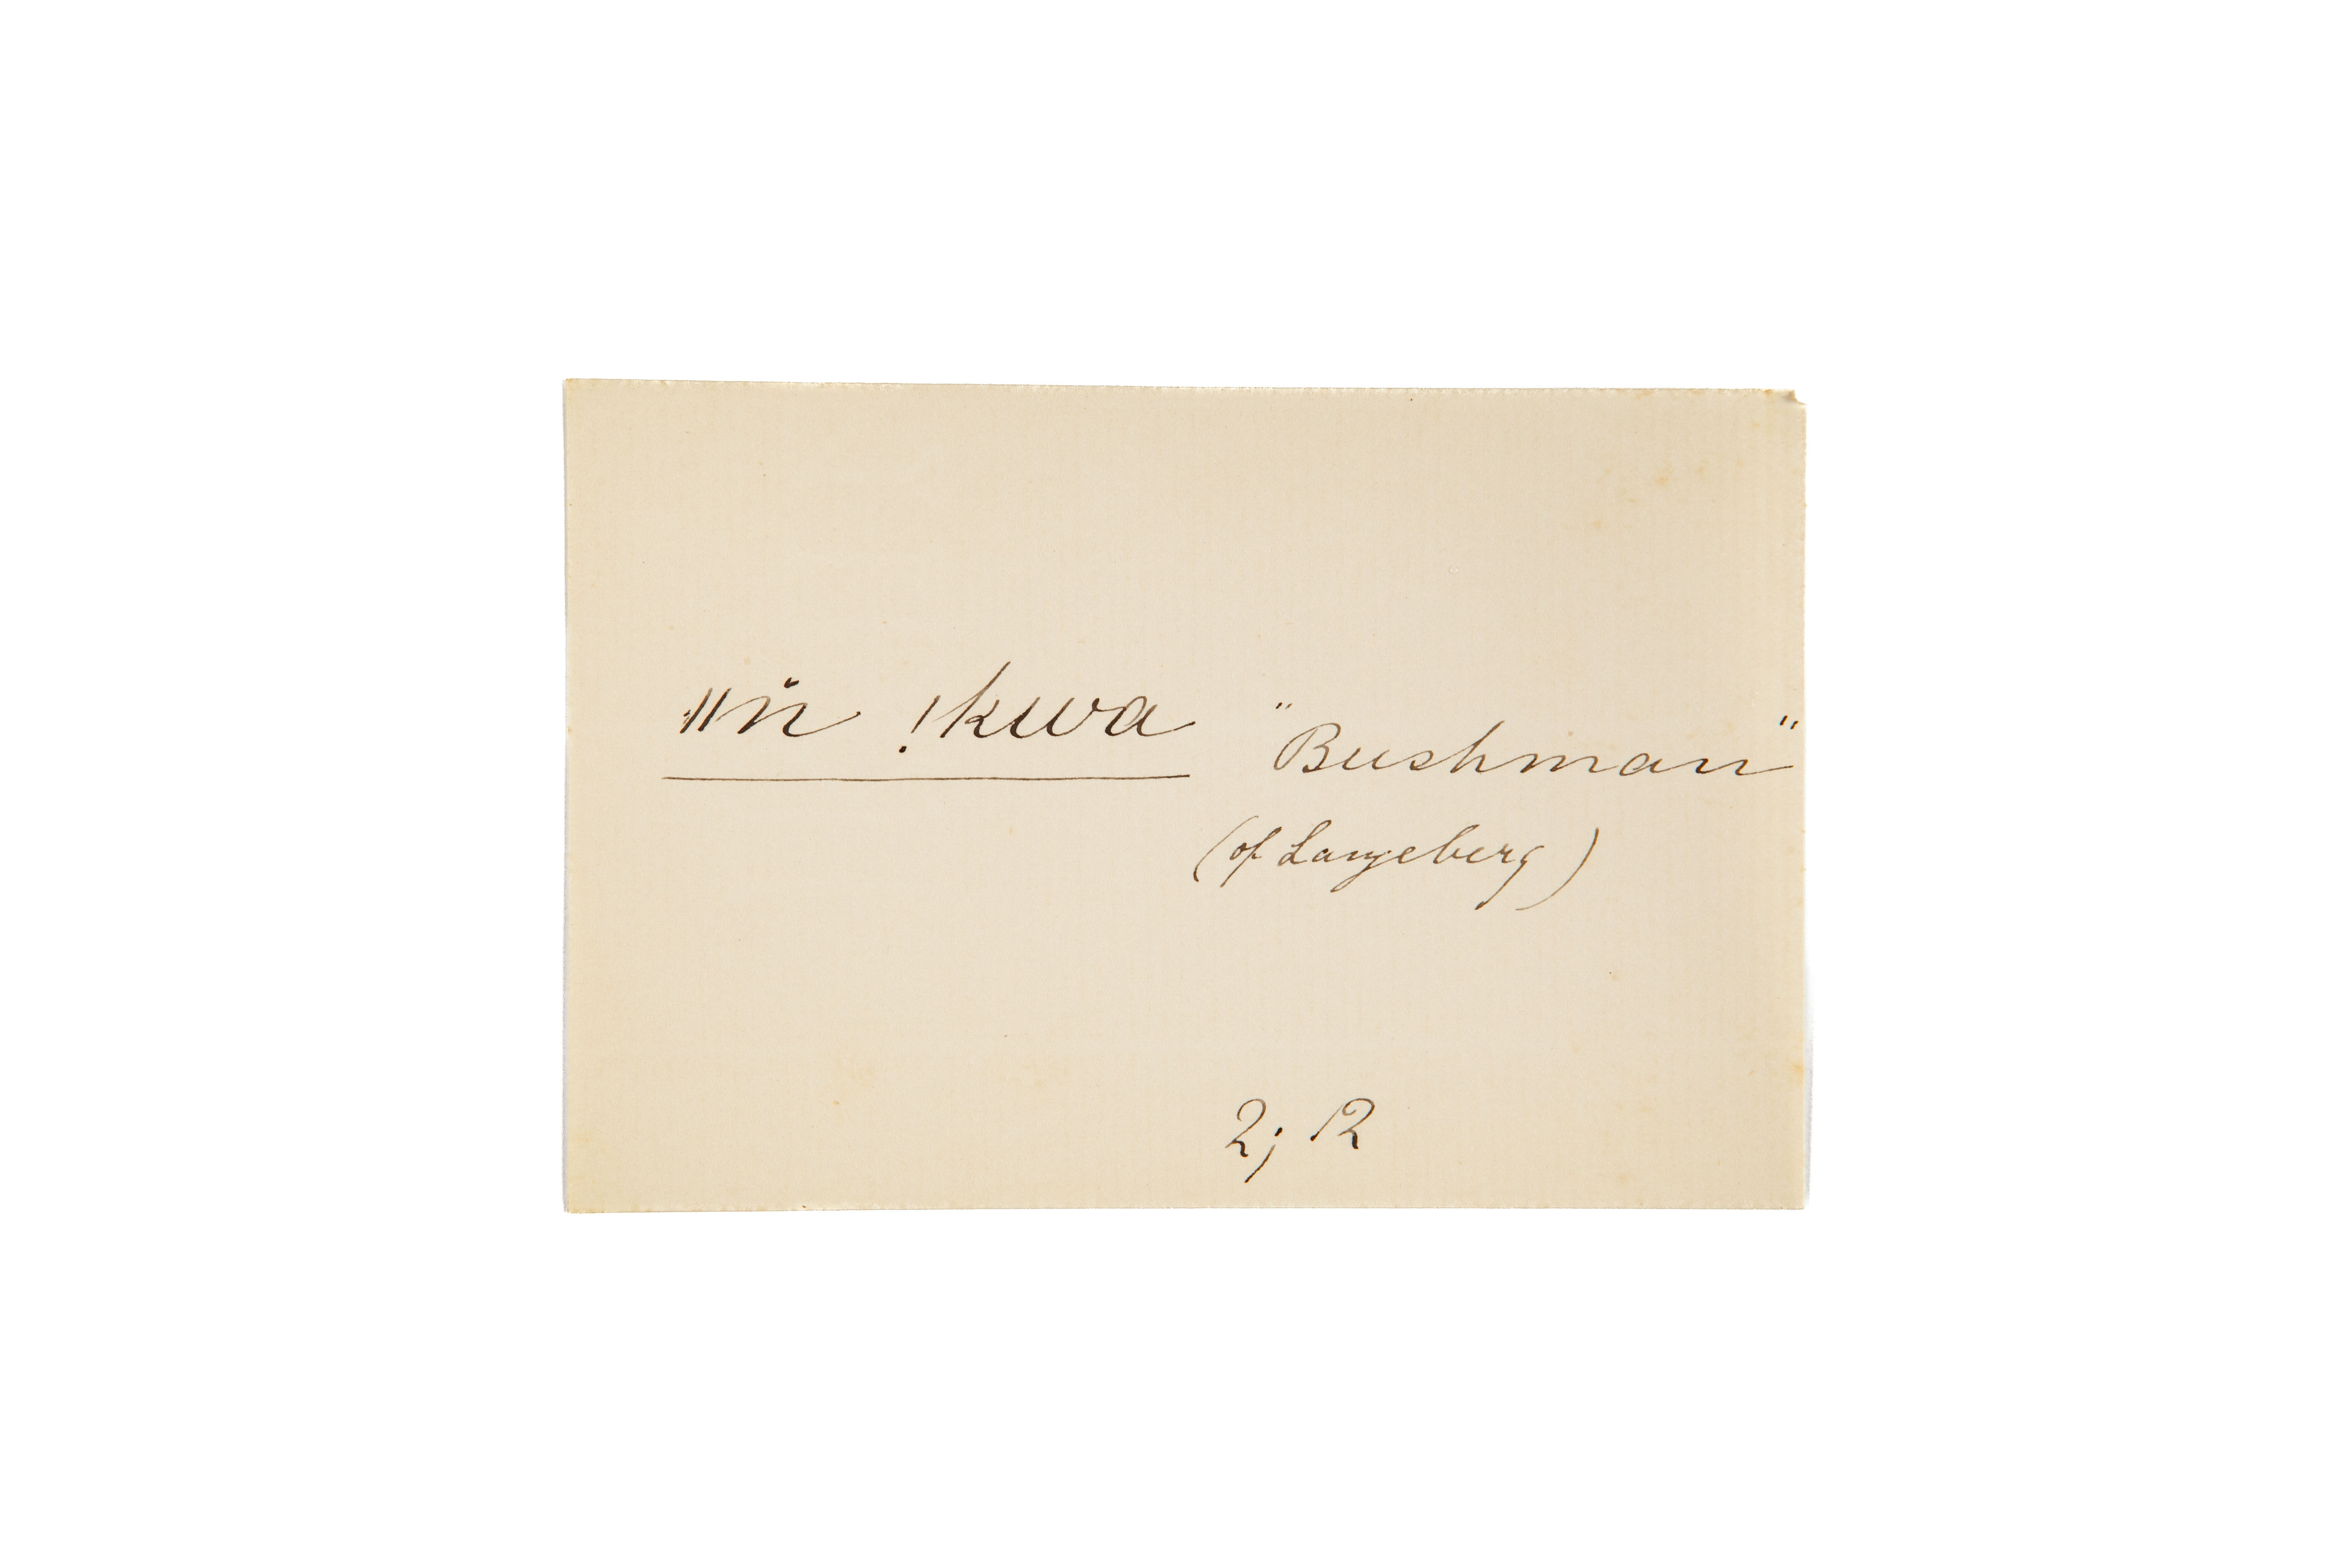 ǁn̆ ǃkwa "Bushman"
(of Langeberg)
2; 12